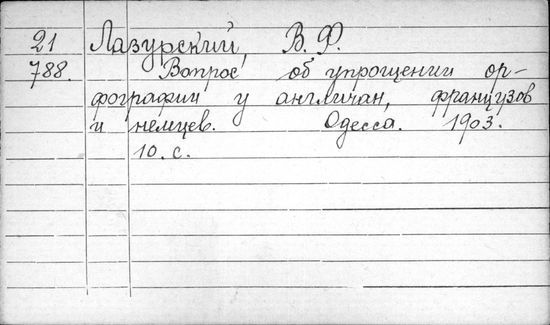 21 Лазурский, В. Ф.
788. Вопрос об упрощении ор-
фографии у англичан, французов
и немцев. Одесса. 1903.
10. с.